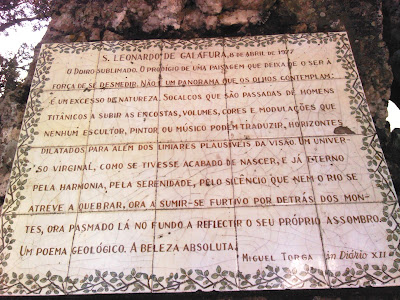 S. LEONARDO DE GALAFURA, 8 DE ABRIL DE 1977
O DOIRO SUBLIMADO. O PRODÍGIO DE UMA PAISAGEM QUE DEIXA DE O SER À
FORÇA DE SE DESMEDIR. NÃO É UM PANORAMA QUE OS OLHOS CONTEMPLAM:
É UM EXCESSO DE NATUREZA. SOCALCOS QUE SÃO PASSADAS DE HOMENS
TITÂNICOS A SUBIR AS ENCOSTAS, VOLUMES, CORES E MODULAÇÕES QUE
NENHUM ESCULTOR, PINTOR OU MÚSICO PODEM TRADUZIR, HORIZONTES
DILATADOS PARA ALÉM DOS LIMIARES PLAUSÍVEIS DA VISÃO. UM UNIVER-
SO VIRGINAL, COMO SE TIVESSE ACABADO DE NASCER, E JÁ ETERNO
PELA HARMONIA, PELA SERENIDADE, PELO SILÊNCIO QUE NEM O RIO SE
ATREVE A QUEBRAR, ORA A SUMIR-SE FURTIVO POR DETRÁS DOS MON-
TES, ORA PASMADO LÁ NO FUNDO A REFLECTIR O SEU PRÓPRIO ASSOMBRO.
UM POEMA GEOLÓGICO. A BELEZA ABSOLUTA.
MIGUEL TORGA in DIÁRIO XII